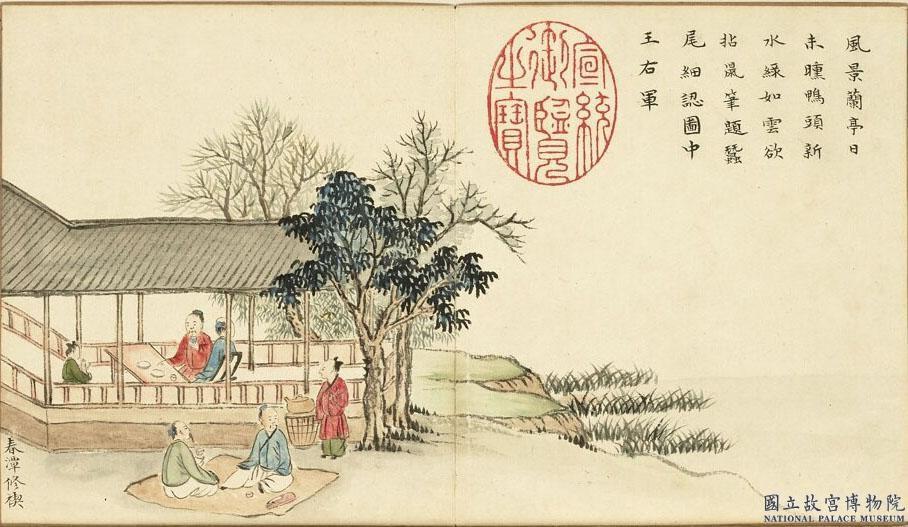 風景蘭亭日
未曛鴨頭新
水綠如雲欲
拈鼠筆題蠶
尾細認圖中
王右軍
宣統
御覽
之寶
春潭修禊
國立故宮博物院
NATIONAL PALACE MUSEUM